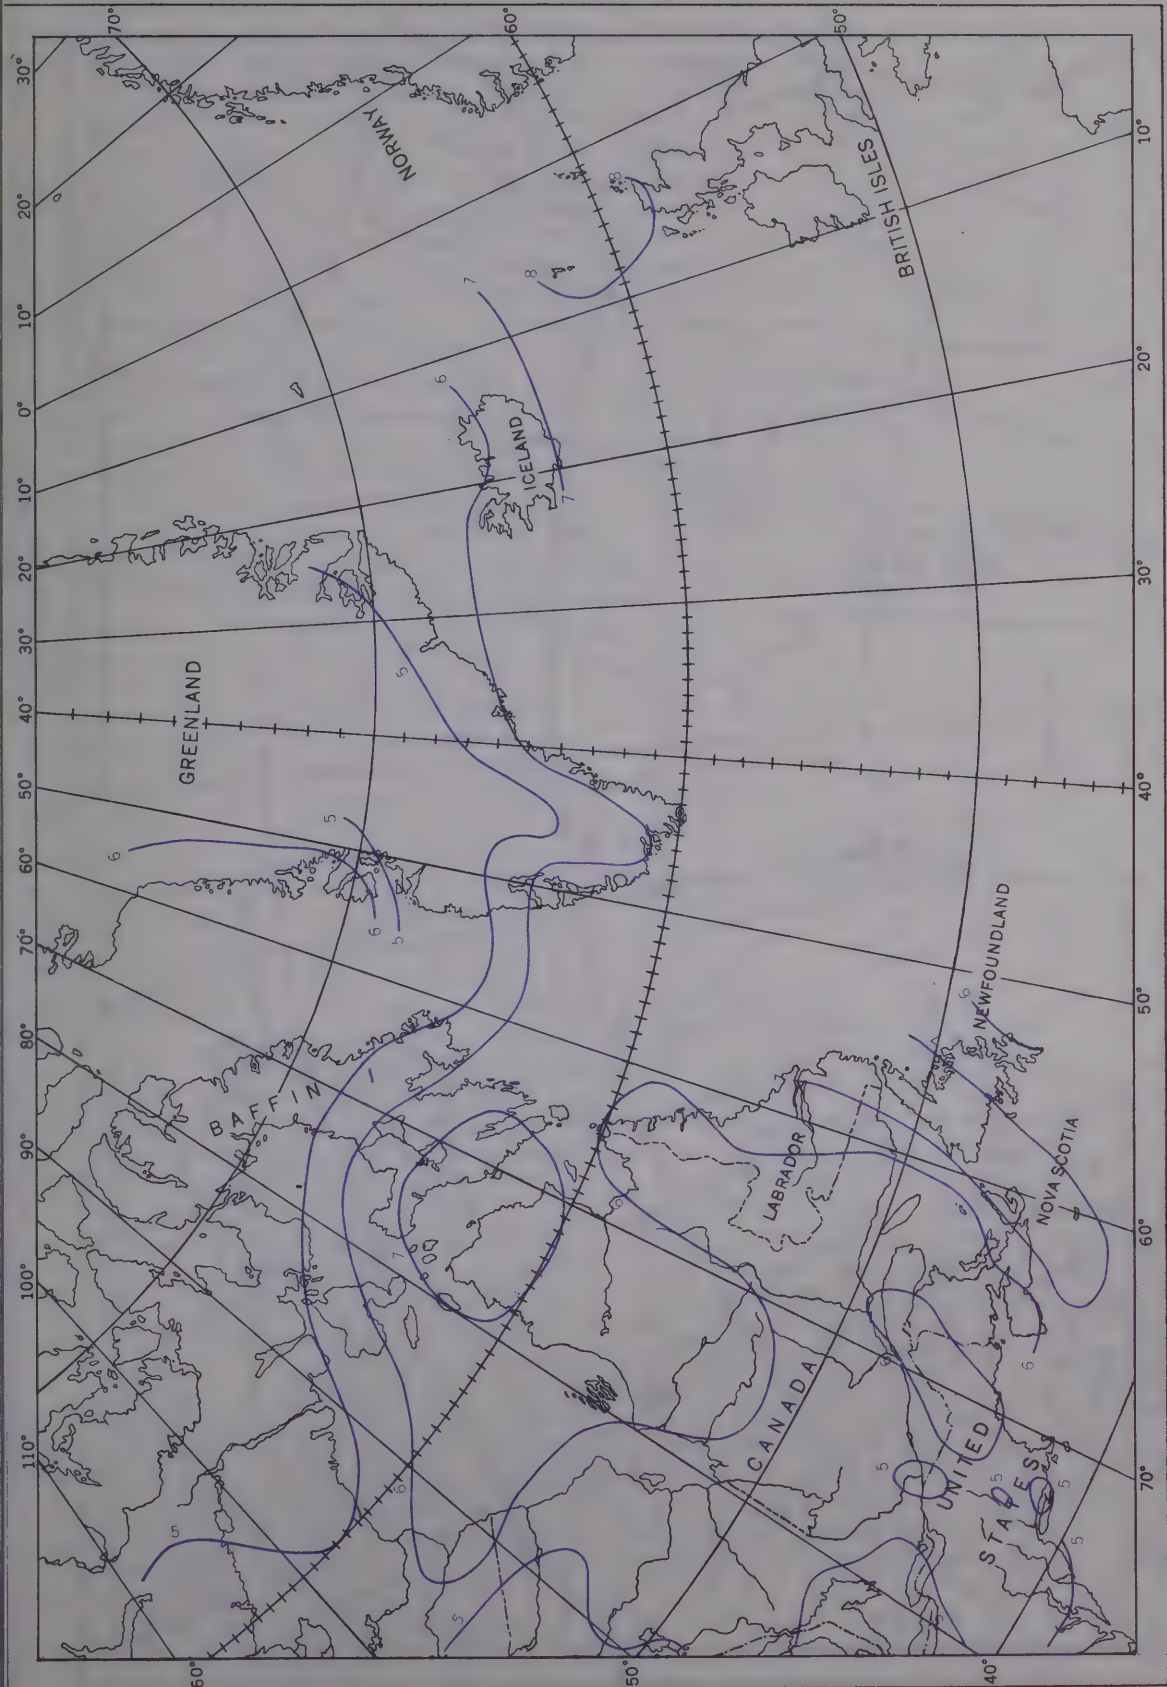 70°
60°
50°
30°
20°
10°
0°
10°
20°
30°
40°
50°
60°
70°
80°
90°
100°
110°
60°
50°
40°
10°
20°
30°
40°
50°
60°
70°
NORWAY
BRITISH ISLES
ICELAND
GREENLAND
BAFFIN I
NEWFOUNDLAND
LABRADOR
NOVA SCOTIA
CANADA
UNITED
STATES
8
8
7
7
6
5
6
5
6
5
7
6
6
6
6
6
6
5
5
5
5
5
5